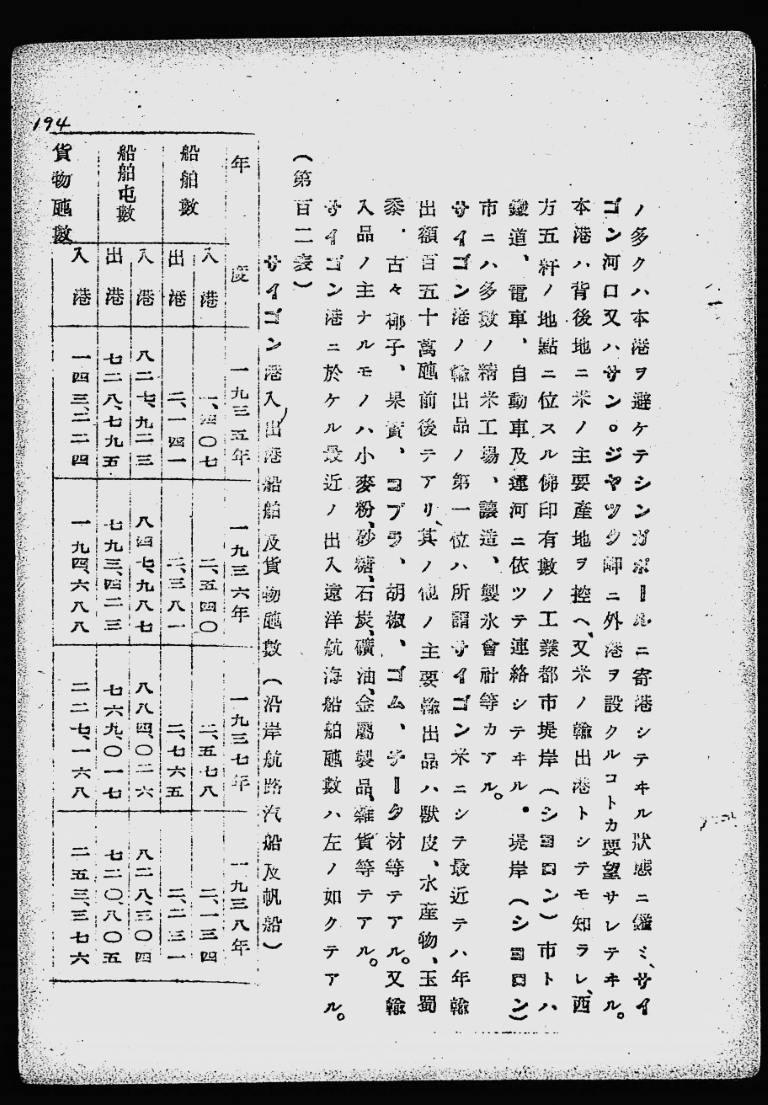 194
ノ多クハ本港ヲ避ケテシンガポールニ寄港シテヰル狀態ニ鑑ミ、サイ
ゴン河口又ハサン。ジヤツク岬ニ外港ヲ設クルコトカ要望サレテヰル。
本港ハ背後地ニ米ノ主要產地ヲ控ヘ、又米ノ輸出港トシテモ知ラレ、西
方五粁ノ地點ニ位スル佛印有數ノ工業都市堤岸(シヨロン)市トハ
鐵道、電車、自動車及運河ニ依ツテ連絡シテヰル。堤岸(シヨロン)
市ニハ多數ノ精米工場、釀造、製氷會社等カアル。
サイゴン港ノ輸出品ノ第一位ハ所謂サイゴン米ニシテ最近テハ年輸
出額百五十萬瓲前後テアリ、其ノ他ノ主要輸出品ハ獸皮、水產物、玉蜀
黍、古々椰子、果實、コプラ、胡椒、ゴム、チーク材等テアル。又輸
入品ノ主ナルモノハ小麥粉、砂糖、石炭、礦油、金屬製品、雜貨等テアル。
サイゴン港ニ於ケル最近ノ出入遠洋航海船舶瓲數ハ左ノ如クテアル。
(第百二表)
サイゴン港入出港船舶及貨物瓲數(沿岸航路汽船及帆船)
年度 一九三五年 一九三六年 一九三七年 一九三八年
船舶數 入港 一、四〇七 二、五四〇 二、五七八 二、一三四
出港 二、一四一 二、三八一 二、七六五 二、二三一
船舶屯數 入港 八二七、九二三 八四七、九八七 八八四、〇二六 八二八、三〇四
出港 七二八、七九五 七九三、四二三 七六九、〇一七 七二〇、八〇五
貨物瓲數 入港 一四三、二二四 一九四、六八八 二二七、一六八 二五三、三七六